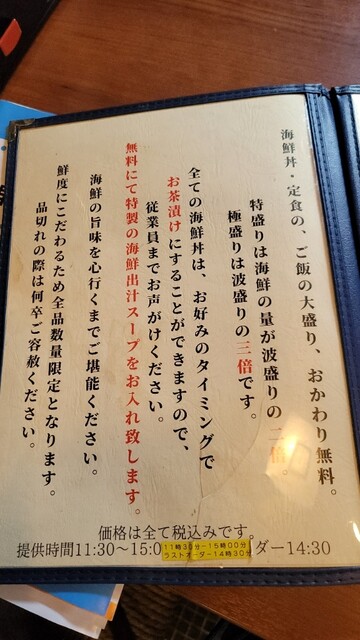 海鮮丼・定食の、ご飯の大盛り、おかわり無料。
特盛りは海鮮の量が波盛りの二倍。
極盛りは波盛りの三倍です。
全ての海鮮丼は、お好みのタイミングで
お茶漬けにすることができますので、
従業員までお声がけください。
無料にて特製の海鮮出汁スープをお入れ致します。
海鮮の旨味を心行くまでご堪能ください。
鮮度にこだわるため全品数量限定となります。
品切れの際は何卒ご容赦ください。
価格は全て税込みです。
提供時間11:30〜15:0
11時30分−15時00分
ラストオーダー14時30分
ダー14:30